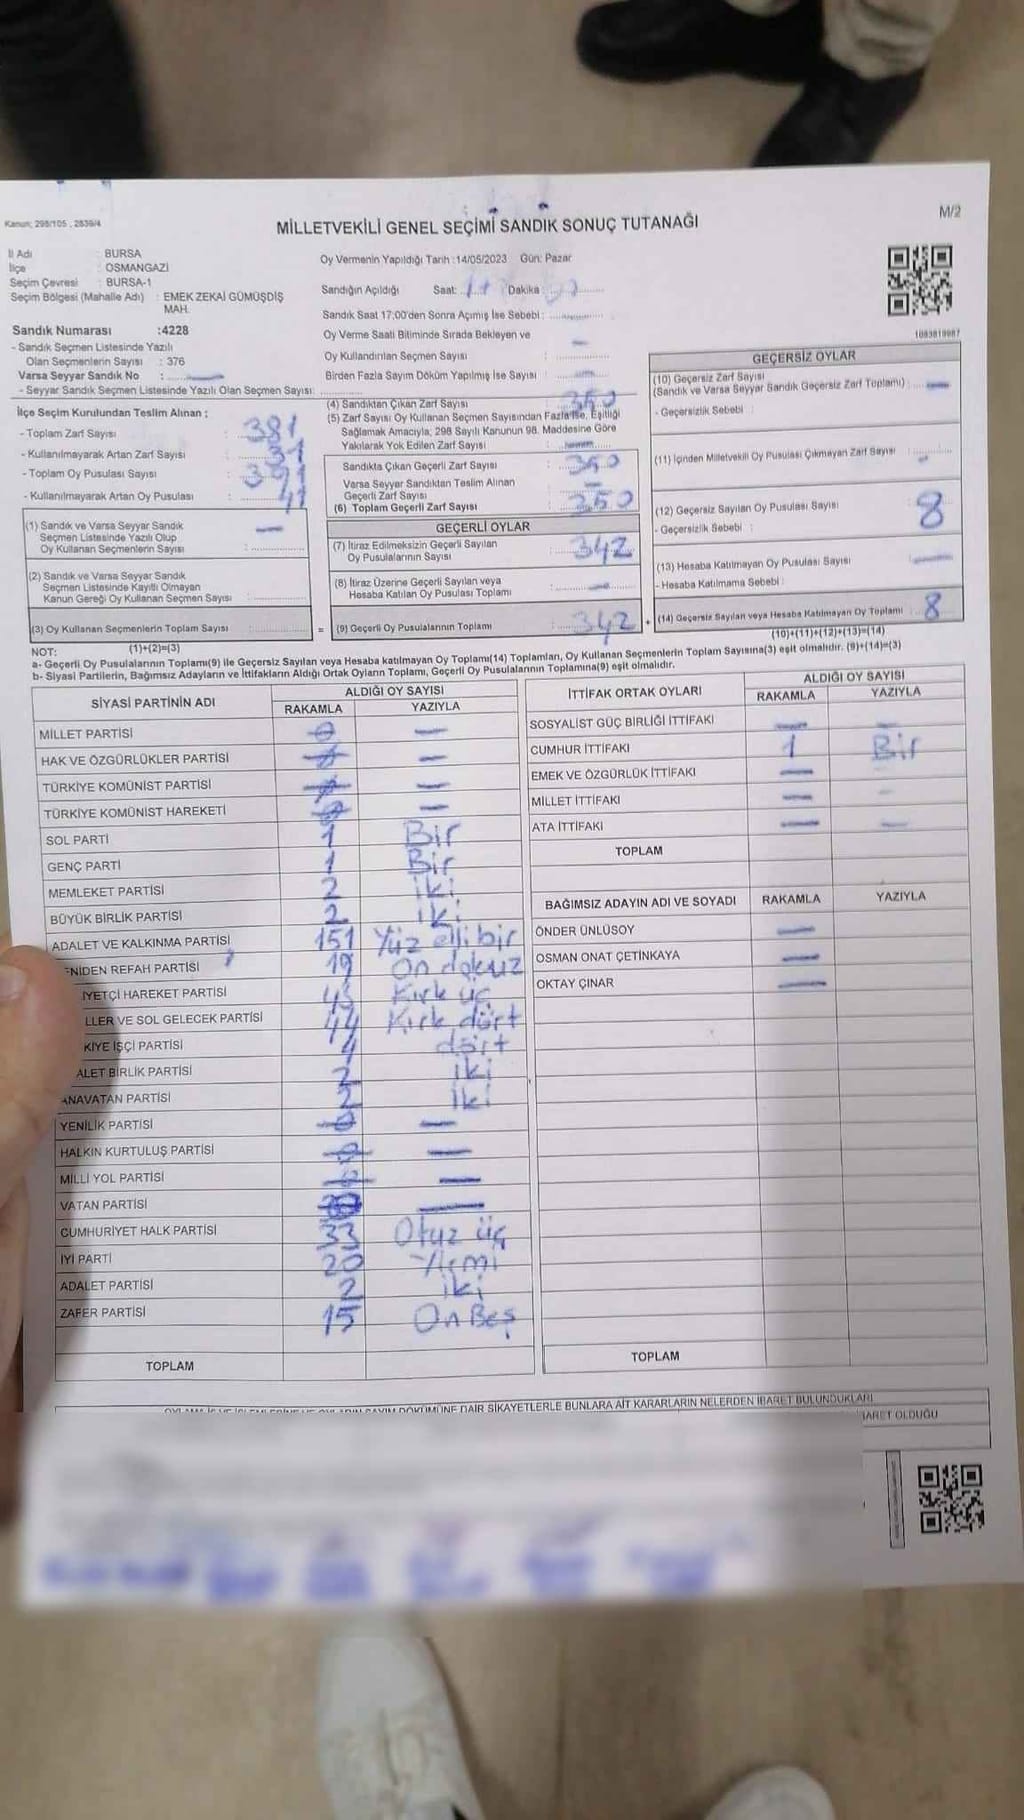 Kanun; 298/105 , 2839/4
M/2
MİLLETVEKİLİ GENEL SEÇİMİ SANDIK SONUÇ TUTANAĞI
İl Adı : BURSA
İlçe : OSMANGAZİ
Seçim Çevresi : BURSA-1
Seçim Bölgesi (Mahalle Adı) : EMEK ZEKAİ GÜMÜŞDİŞ
MAH.
Sandık Numarası :4228
- Sandık Seçmen Listesinde Yazılı
Olan Seçmenlerin Sayısı : 376
Varsa Seyyar Sandık No : —
- Seyyar Sandık Seçmen Listesinde Yazılı Olan Seçmen Sayısı:
Oy Vermenin Yapıldığı Tarih :14/05/2023 Gün: Pazar
Sandığın Açıldığı Saat: 17 Dakika
Sandık Saat 17:00'den Sonra Açımış İse Sebebi :
Oy Verme Saati Bitiminde Sırada Bekleyen ve
Oy Kullandırılan Seçmen Sayısı : —
Birden Fazla Sayım Döküm Yapılmış İse Sayısı : —
1083819987
İlçe Seçim Kurulundan Teslim Alınan ;
- Toplam Zarf Sayısı : 381
- Kullanılmayarak Artan Zarf Sayısı : 31
- Toplam Oy Pusulası Sayısı : 391
- Kullanılmayarak Artan Oy Pusulası : 41
(1) Sandık ve Varsa Seyyar Sandık
Seçmen Listesinde Yazılı Olup
Oy Kullanan Seçmenlerin Sayısı : —
(2) Sandık ve Varsa Seyyar Sandık
Seçmen Listesinde Kayıtlı Olmayan
Kanun Gereği Oy Kullanan Seçmen Sayısı :
(3) Oy Kullanan Seçmenlerin Toplam Sayısı
(1)+(2)=(3)
(4) Sandıktan Çıkan Zarf Sayısı : 350
(5) Zarf Sayısı Oy Kullanan Seçmen Sayısından Fazla İse, Eşitliği
Sağlamak Amacıyla; 298 Sayılı Kanunun 98. Maddesine Göre
Yakılarak Yok Edilen Zarf Sayısı : —
Sandıkta Çıkan Geçerli Zarf Sayısı : 350
Varsa Seyyar Sandıktan Teslim Alınan
Geçerli Zarf Sayısı : —
(6) Toplam Geçerli Zarf Sayısı : 350
GEÇERLİ OYLAR
(7) İtiraz Edilmeksizin Geçerli Sayılan
Oy Pusulalarının Sayısı : 342
(8) İtiraz Üzerine Geçerli Sayılan veya
Hesaba Katılan Oy Pusulası Toplamı : —
= (9) Geçerli Oy Pusulalarının Toplamı : 342 +
GEÇERSİZ OYLAR
(10) Geçersiz Zarf Sayısı
(Sandık ve Varsa Seyyar Sandık Geçersiz Zarf Toplamı) : —
- Geçersizlik Sebebi :
(11) İçinden Milletvekili Oy Pusulası Çıkmayan Zarf Sayısı : —
(12) Geçersiz Sayılan Oy Pusulası Sayısı : 8
- Geçersizlik Sebebi :
(13) Hesaba Katılmayan Oy Pusulası Sayısı : —
- Hesaba Katılmama Sebebi :
(14) Geçersiz Sayılan veya Hesaba Katılmayan Oy Toplamı : 8
(10)+(11)+(12)+(13)=(14)
NOT:
a- Geçerli Oy Pusulalarının Toplamı(9) ile Geçersiz Sayılan veya Hesaba katılmayan Oy Toplamı(14) Toplamları, Oy Kullanan Seçmenlerin Toplam Sayısına(3) eşit olmalıdır. (9)+(14)=(3)
b- Siyasi Partilerin, Bağımsız Adayların ve İttifakların Aldığı Ortak Oyların Toplamı, Geçerli Oy Pusulalarının Toplamına(9) eşit olmalıdır.
SİYASİ PARTİNİN ADI ALDIĞI OY SAYISI
RAKAMLA YAZIYLA
MİLLET PARTİSİ 0 —
HAK VE ÖZGÜRLÜKLER PARTİSİ 0 —
TÜRKİYE KOMÜNİST PARTİSİ 0 —
TÜRKİYE KOMÜNİST HAREKETİ 0 —
SOL PARTİ 1 Bir
GENÇ PARTİ 1 Bir
MEMLEKET PARTİSİ 2 iki
BÜYÜK BİRLİK PARTİSİ 2 iki
ADALET VE KALKINMA PARTİSİ 151 Yüz elli bir
ENİDEN REFAH PARTİSİ 19 On dokuz
İYETÇİ HAREKET PARTİSİ 43 Kırk üç
LLER VE SOL GELECEK PARTİSİ 44 Kırk dört
KİYE İŞÇİ PARTİSİ 4 dört
ALET BİRLİK PARTİSİ 2 iki
ANAVATAN PARTİSİ 2 iki
YENİLİK PARTİSİ 0 —
HALKIN KURTULUŞ PARTİSİ 0 —
MİLLİ YOL PARTİSİ 0 —
VATAN PARTİSİ —
CUMHURİYET HALK PARTİSİ 33 Otuz üç
İYİ PARTİ 20 Yirmi
ADALET PARTİSİ 2 iki
ZAFER PARTİSİ 15 On Beş
TOPLAM
İTTİFAK ORTAK OYLARI ALDIĞI OY SAYISI
RAKAMLA YAZIYLA
SOSYALİST GÜÇ BİRLİĞİ İTTİFAKI — —
CUMHUR İTTİFAKI 1 Bir
EMEK VE ÖZGÜRLÜK İTTİFAKI — —
MİLLET İTTİFAKI — —
ATA İTTİFAKI — —
TOPLAM
BAĞIMSIZ ADAYIN ADI VE SOYADI RAKAMLA YAZIYLA
ÖNDER ÜNLÜSOY —
OSMAN ONAT ÇETİNKAYA —
OKTAY ÇINAR —
TOPLAM
OYLAMA İŞ VE İŞLEMLERİNE VE OYLARIN SAYIM DÖKÜMÜNE DAİR ŞİKAYETLERLE BUNLARA AİT KARARLARIN NELERDEN İBARET BULUNDUKLARI
BARET OLDUĞU